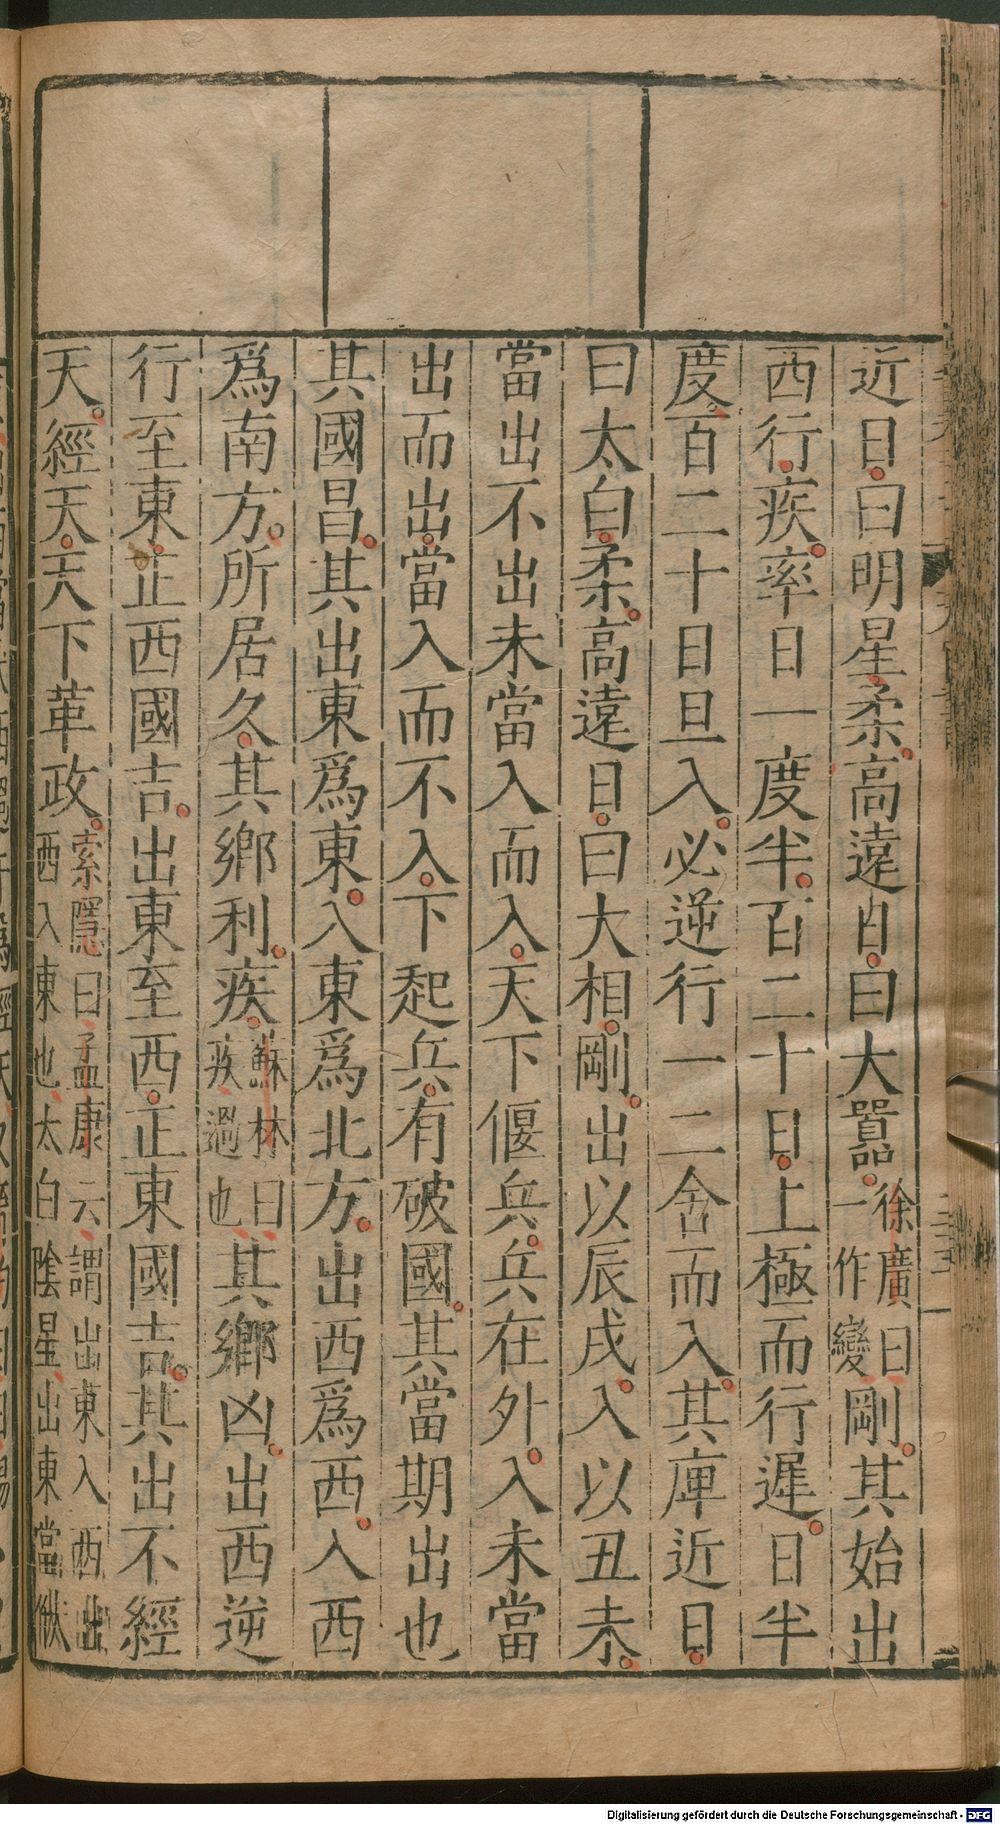 近日曰明星柔高遠日曰大囂徐廣曰一作變剛其始出
西行疾率日一度半百二十日上極而行遲日半
度百二十日旦入必逆行一二舍而入其庳近日
曰太白柔高遠日曰大相剛出以辰戌入以丑未
當出不出未當入而入天下偃兵兵在外入未當
出而出當入而不入下起兵有破國其當期出也
其國昌其出東爲東入東爲北方出西爲西入西
爲南方所居久其鄉利疾蘇林曰疾過也其鄉凶出西逆
行至東正西國吉出東至西正東國吉其出不經
天經天天下革政索隱曰孟康云謂出東入西出西入東也太白陰星出東當伏
Digitalisierung gefördert durch die Deutsche Forschungsgemeinschaft - DFG